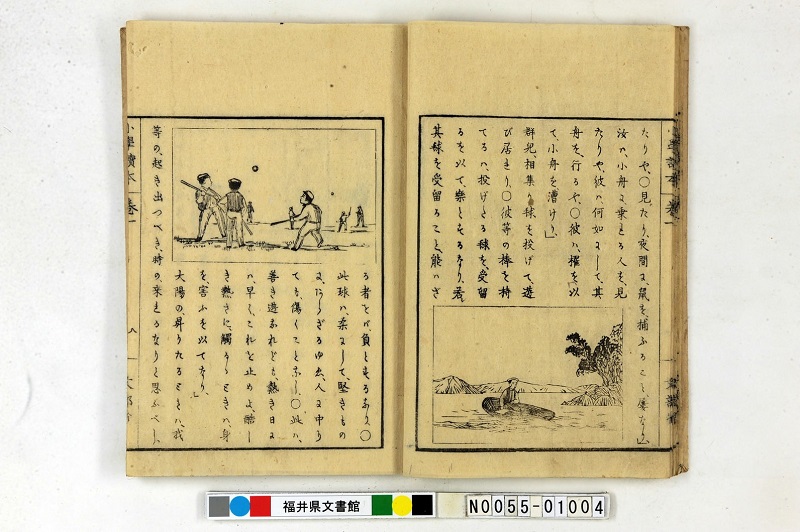 たりや、〇見たり、夜間に、鼠を、捕ふることも屡なり」
汝ハ、小舟に乗れる人を、見
たりや、彼ハ何如にして、其
舟を、行るや、〇彼ハ、櫂を以
て、小舟を漕けり」
群児、相集り、球を投げて、遊
び居れり、〇彼等の棒を持
てるハ、投げたる球を受留
るを以て、楽とするなり、若、
其球を受留ること、能ハざ
る者をバ、負とするなり、〇
此球ハ、柔にして、堅きもの
にあらざるゆゑ、人に中り
ても、傷くことなし、〇此ハ、
善き遊なれども、熱き日に
ハ、早く、これを止めよ、酷し
き熱さに、觸るゝときハ、身
を害ふを以てなり、」
太陽の、昇りたるときハ、我
等の、起き出づべき、時の、来れるなりと思ふべし、
小學讀本 巻一
八
福井県文書館
N0055-01004